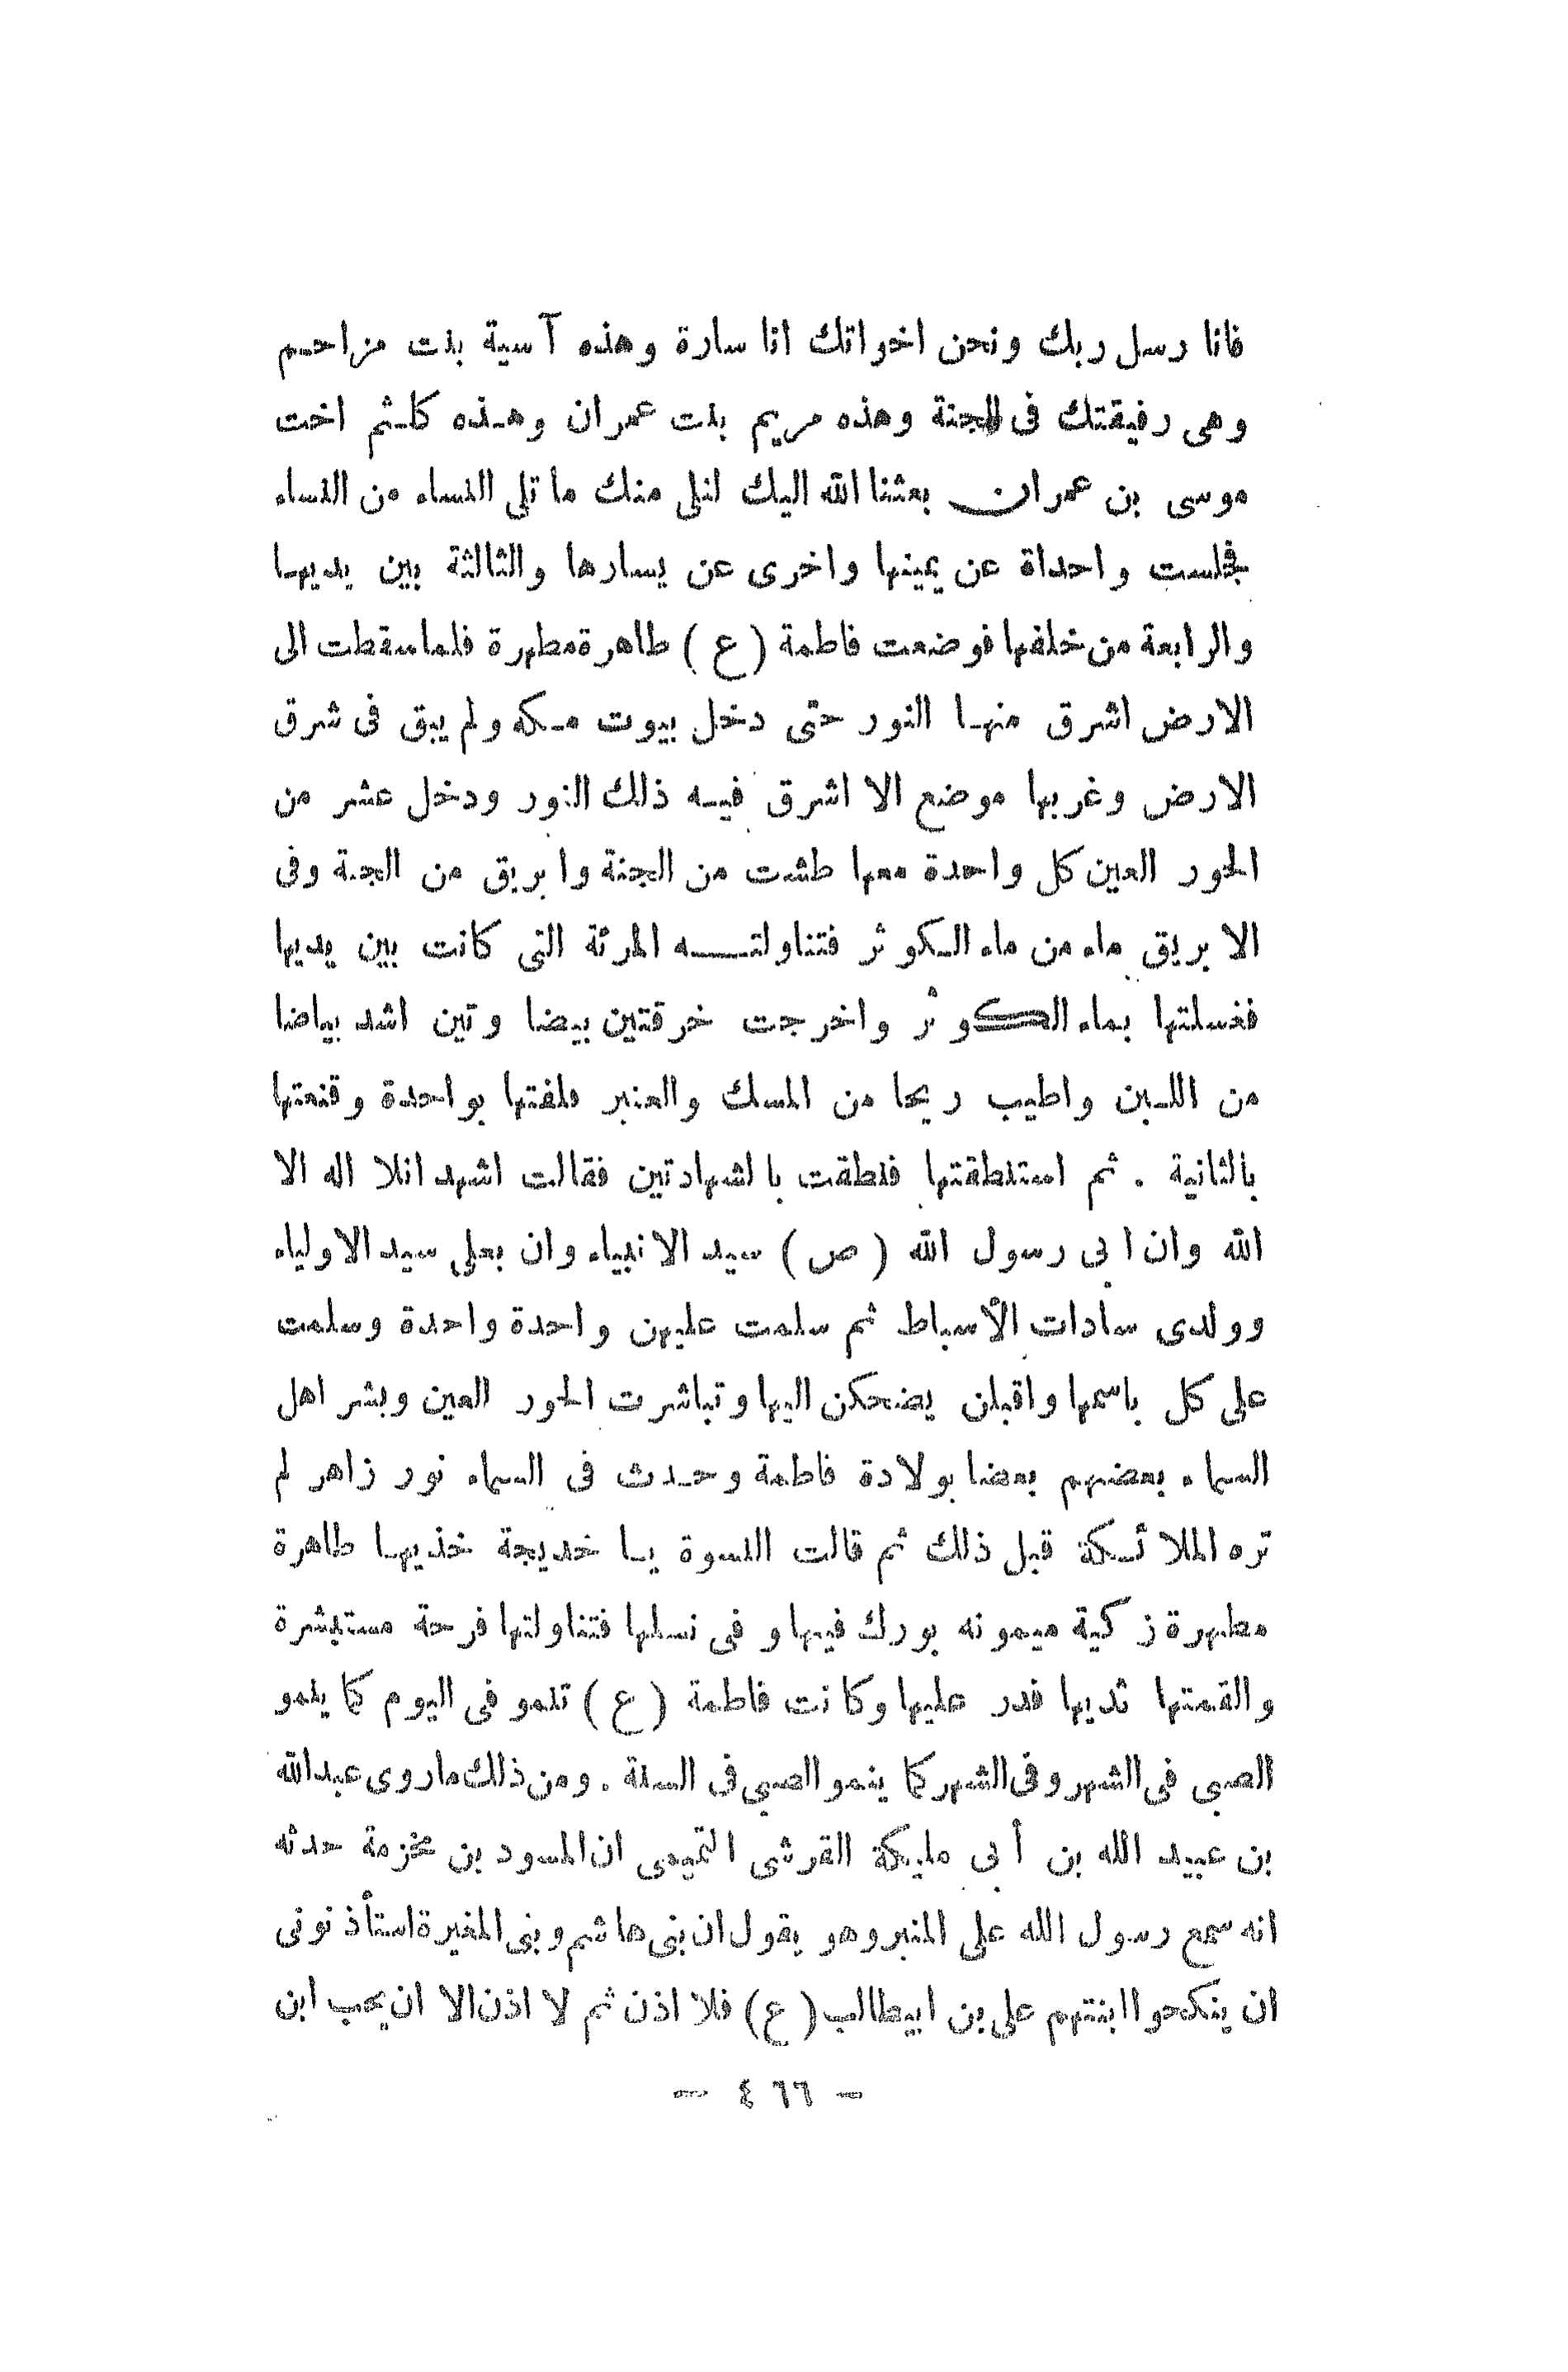 فانا رسل ربك ونحن اخواتك انا سارة وهذه آسية بنت مزاحم
وهى رفيقتك فى الجنة وهذه مريم بنت عمران وهذه كلثم اخت
موسى بن عمران بعثنا الله اليك لنلى منك ما تلى النساء من النساء
فجلست واحداة عن يمينها واخرى عن يسارها والثالثة بين يديها
والرابعة من خلفها فوضعت فاطمة ( ع ) طاهرة مطهرة فلما سقطت الى
الارض اشرق منها النور حتى دخل بيوت مكه ولم يبق فى شرق
الارض وغربها موضع الا اشرق فيه ذلك النور ودخل عشر من
الحور العين كل واحدة معها طشت من الجنة وابريق من الجنة وفى
الابريق ماء من ماء الكوثر فتناولته المرئة التى كانت بين يديها
فغسلتها بماء الكوثر واخرجت خرقتين بيضاوتين اشد بياضا
من اللبن واطيب ريحا من المسك والعنبر فلفتها بواحدة وقنعتها
بالثانية . ثم استنطقتها فنطقت بالشهادتين فقالت اشهد انلا اله الا
الله وان ابى رسول الله ( ص ) سيد الانبياء وان بعلى سيد الاولياء
وولدى سادات الأسباط ثم سلمت عليهن واحدة واحدة وسلمت
على كل باسمها واقبلن يضحكن اليها وتباشرت الحور العين وبشر اهل
السماء بعضهم بعضا بولادة فاطمة وحدث فى السماء نور زاهر لم
تره الملائكة قبل ذلك ثم قالت النسوة يا خديجة خذيها طاهرة
مطهرة زكية ميمونه بورك فيها وفى نسلها فتناولتها فرحة مستبشرة
والقمتها ثديها فدر عليها وكانت فاطمة ( ع ) تنمو فى اليوم كما ينمو
الصبى فى الشهر وفى الشهر كما ينمو الصبى فى السنة . ومن ذلك ما روى عبدالله
بن عبيد الله بن أبى مليكة القرشى التميمى ان المسود بن مخزمة حدثه
انه سمع رسول الله على المنبر وهو يقول ان بنى هاشم وبنى المغيرة استأذنونى
ان ينكحوا ابنتهم على بن ابيطالب ( ع ) فلا اذن ثم لا اذن الا ان يحب ابن
— ٤٦٦ —